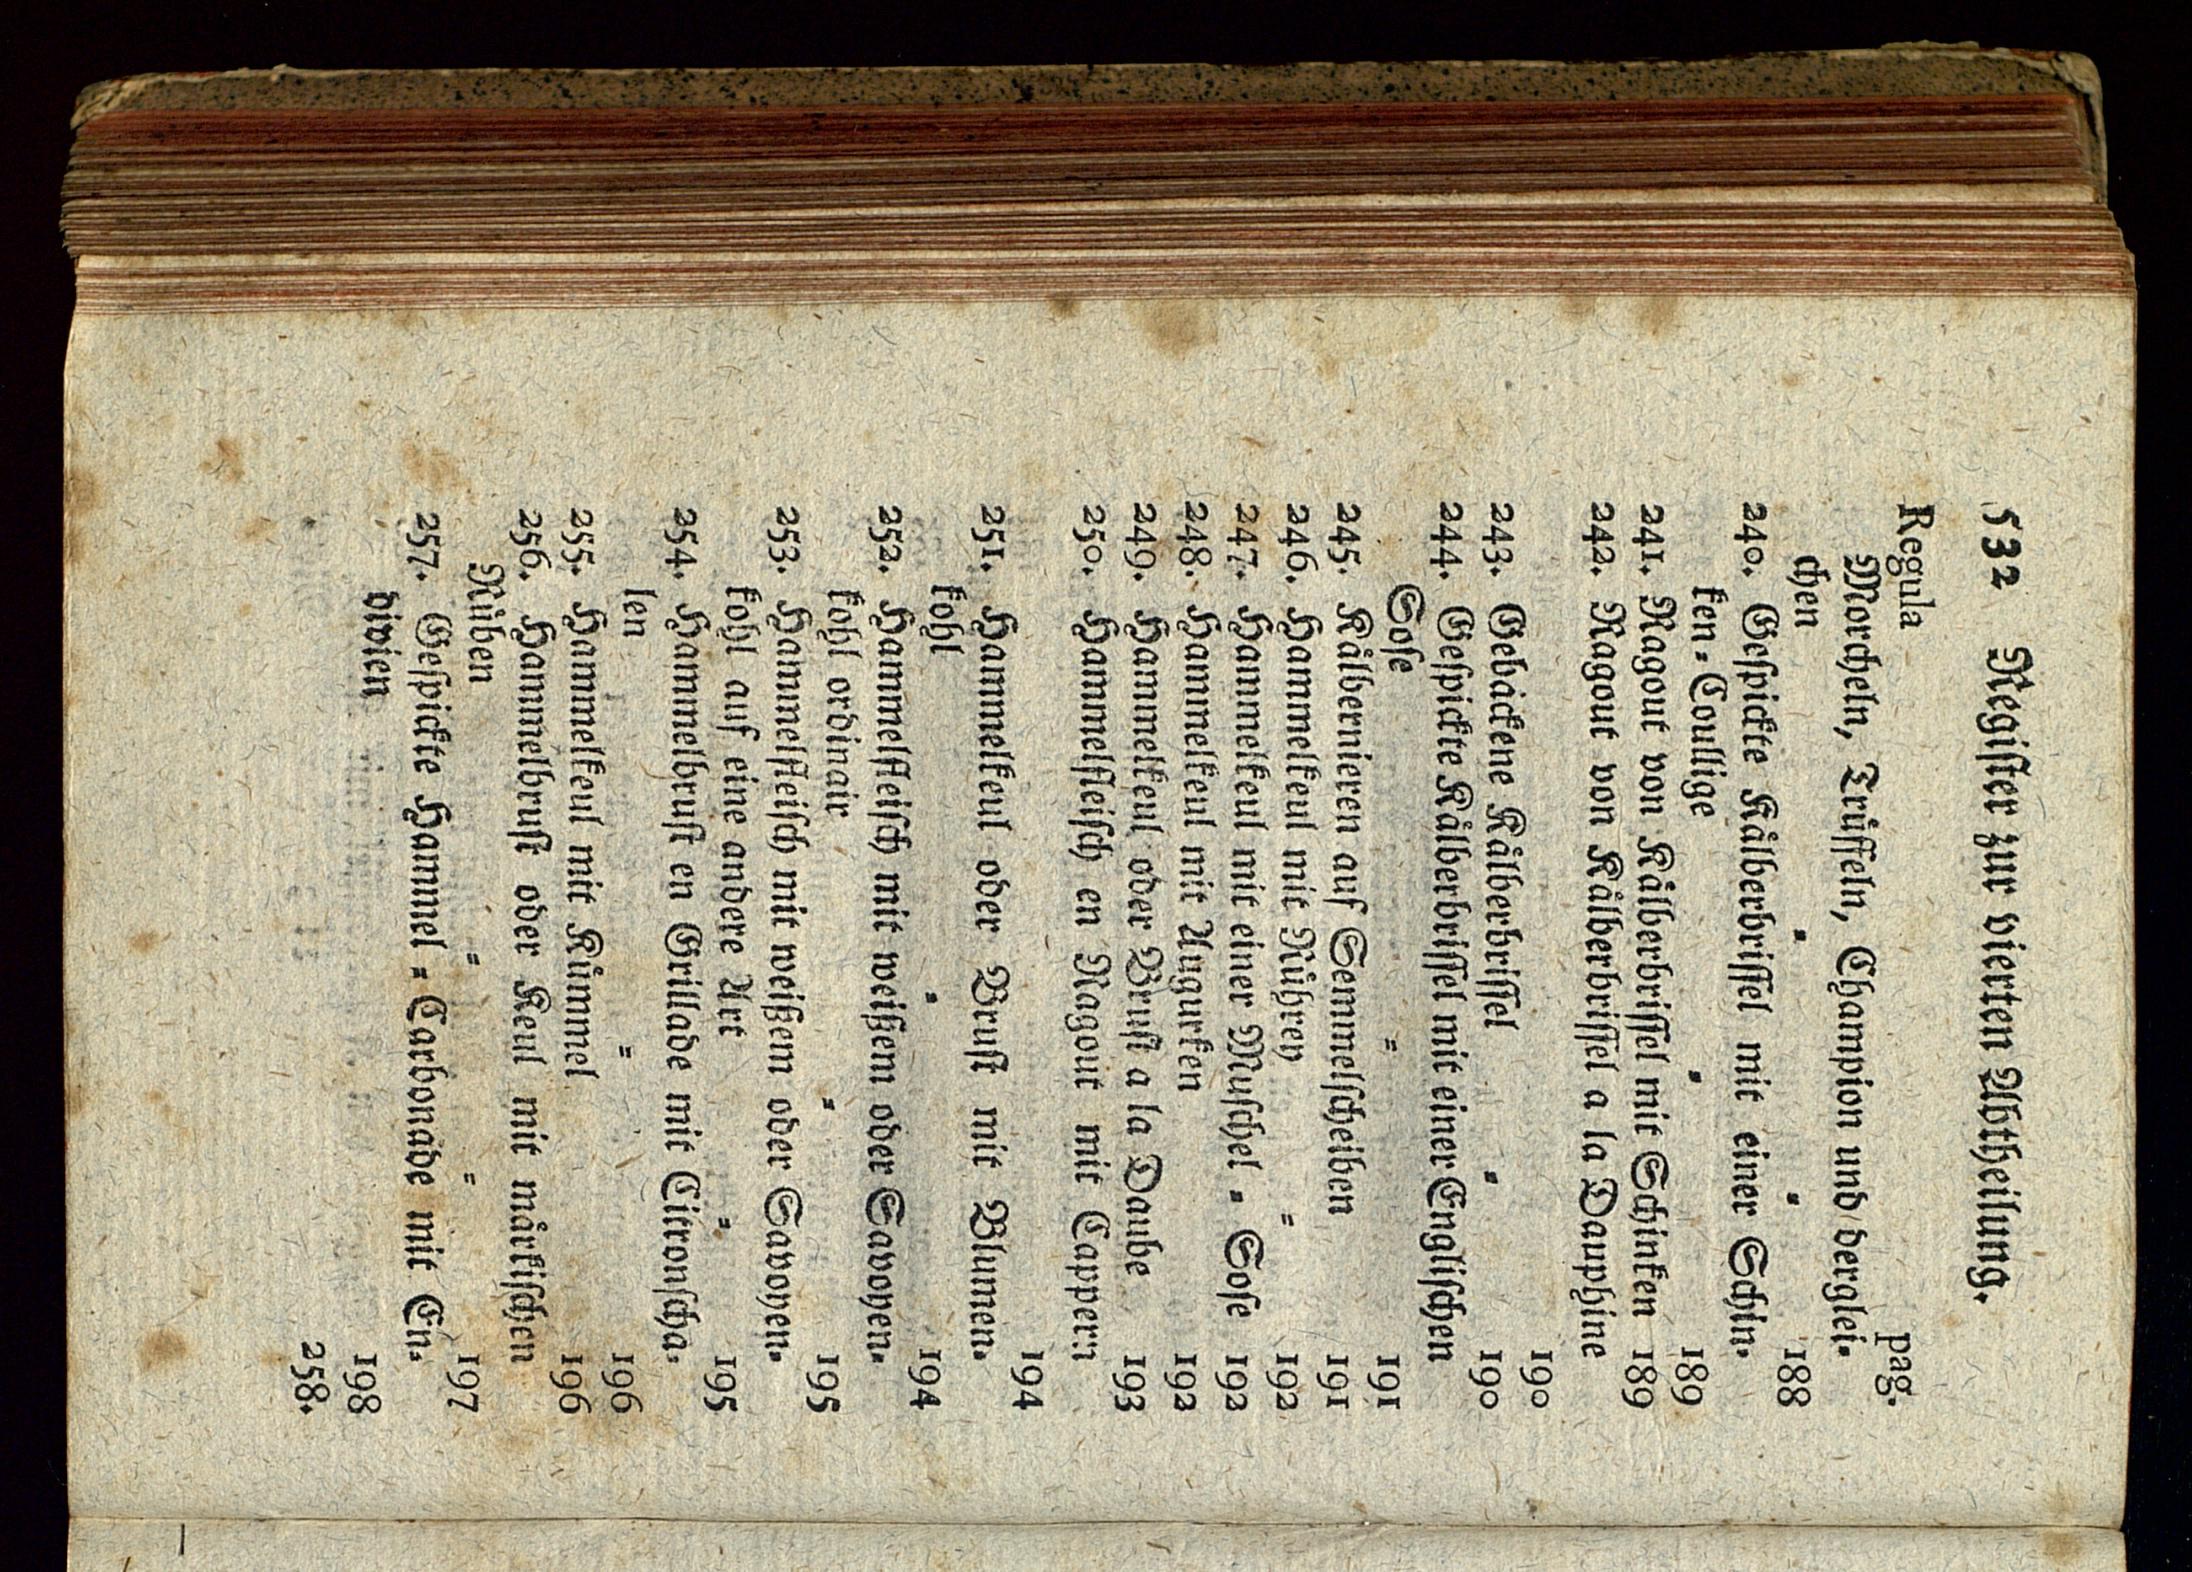 532 Register zur vierten Abtheilung.
Regula pag.
Morcheln, Trüffeln, Champion und derglei-
chen = = 188
240. Gespickte Kälberbrissel mit einer Schin-
ken-Coullige = 189
241. Ragout von Kälberbrissel mit Schinken 189
242. Ragout von Kälberbrissel a la Dauphine
190
243. Gebackene Kälberbrissel = 190
244. Gespickte Kälberbrissel mit einer Englischen
Sose = 191
245. Kälbernieren auf Semmelscheiben 191
246. Hammelkeul mit Rühren = 192
247. Hammelkeul mit einer Muschel = Sose 192
248. Hammelkeul mit Augurken 192
249. Hammelkeul oder Brust a la Daube 193
250. Hammelfleisch en Ragout mit Cappern
194
251. Hammelkeul oder Brust mit Blumen-
kohl = 194
252. Hammelfleisch mit weißem oder Savoyen-
kohl ordinair = 195
253. Hammelfleisch mit weißem oder Savoyen-
kohl auf eine andere Art = 195
254. Hammelbrust en Grillade mit Citronscha-
len = 196
255. Hammelkeul mit Kümmel 196
256. Hammelbrust oder Keul mit märkischen
Rüben = = 197
257. Gespickte Hammel = Carbonade mit En-
divien 198
258.